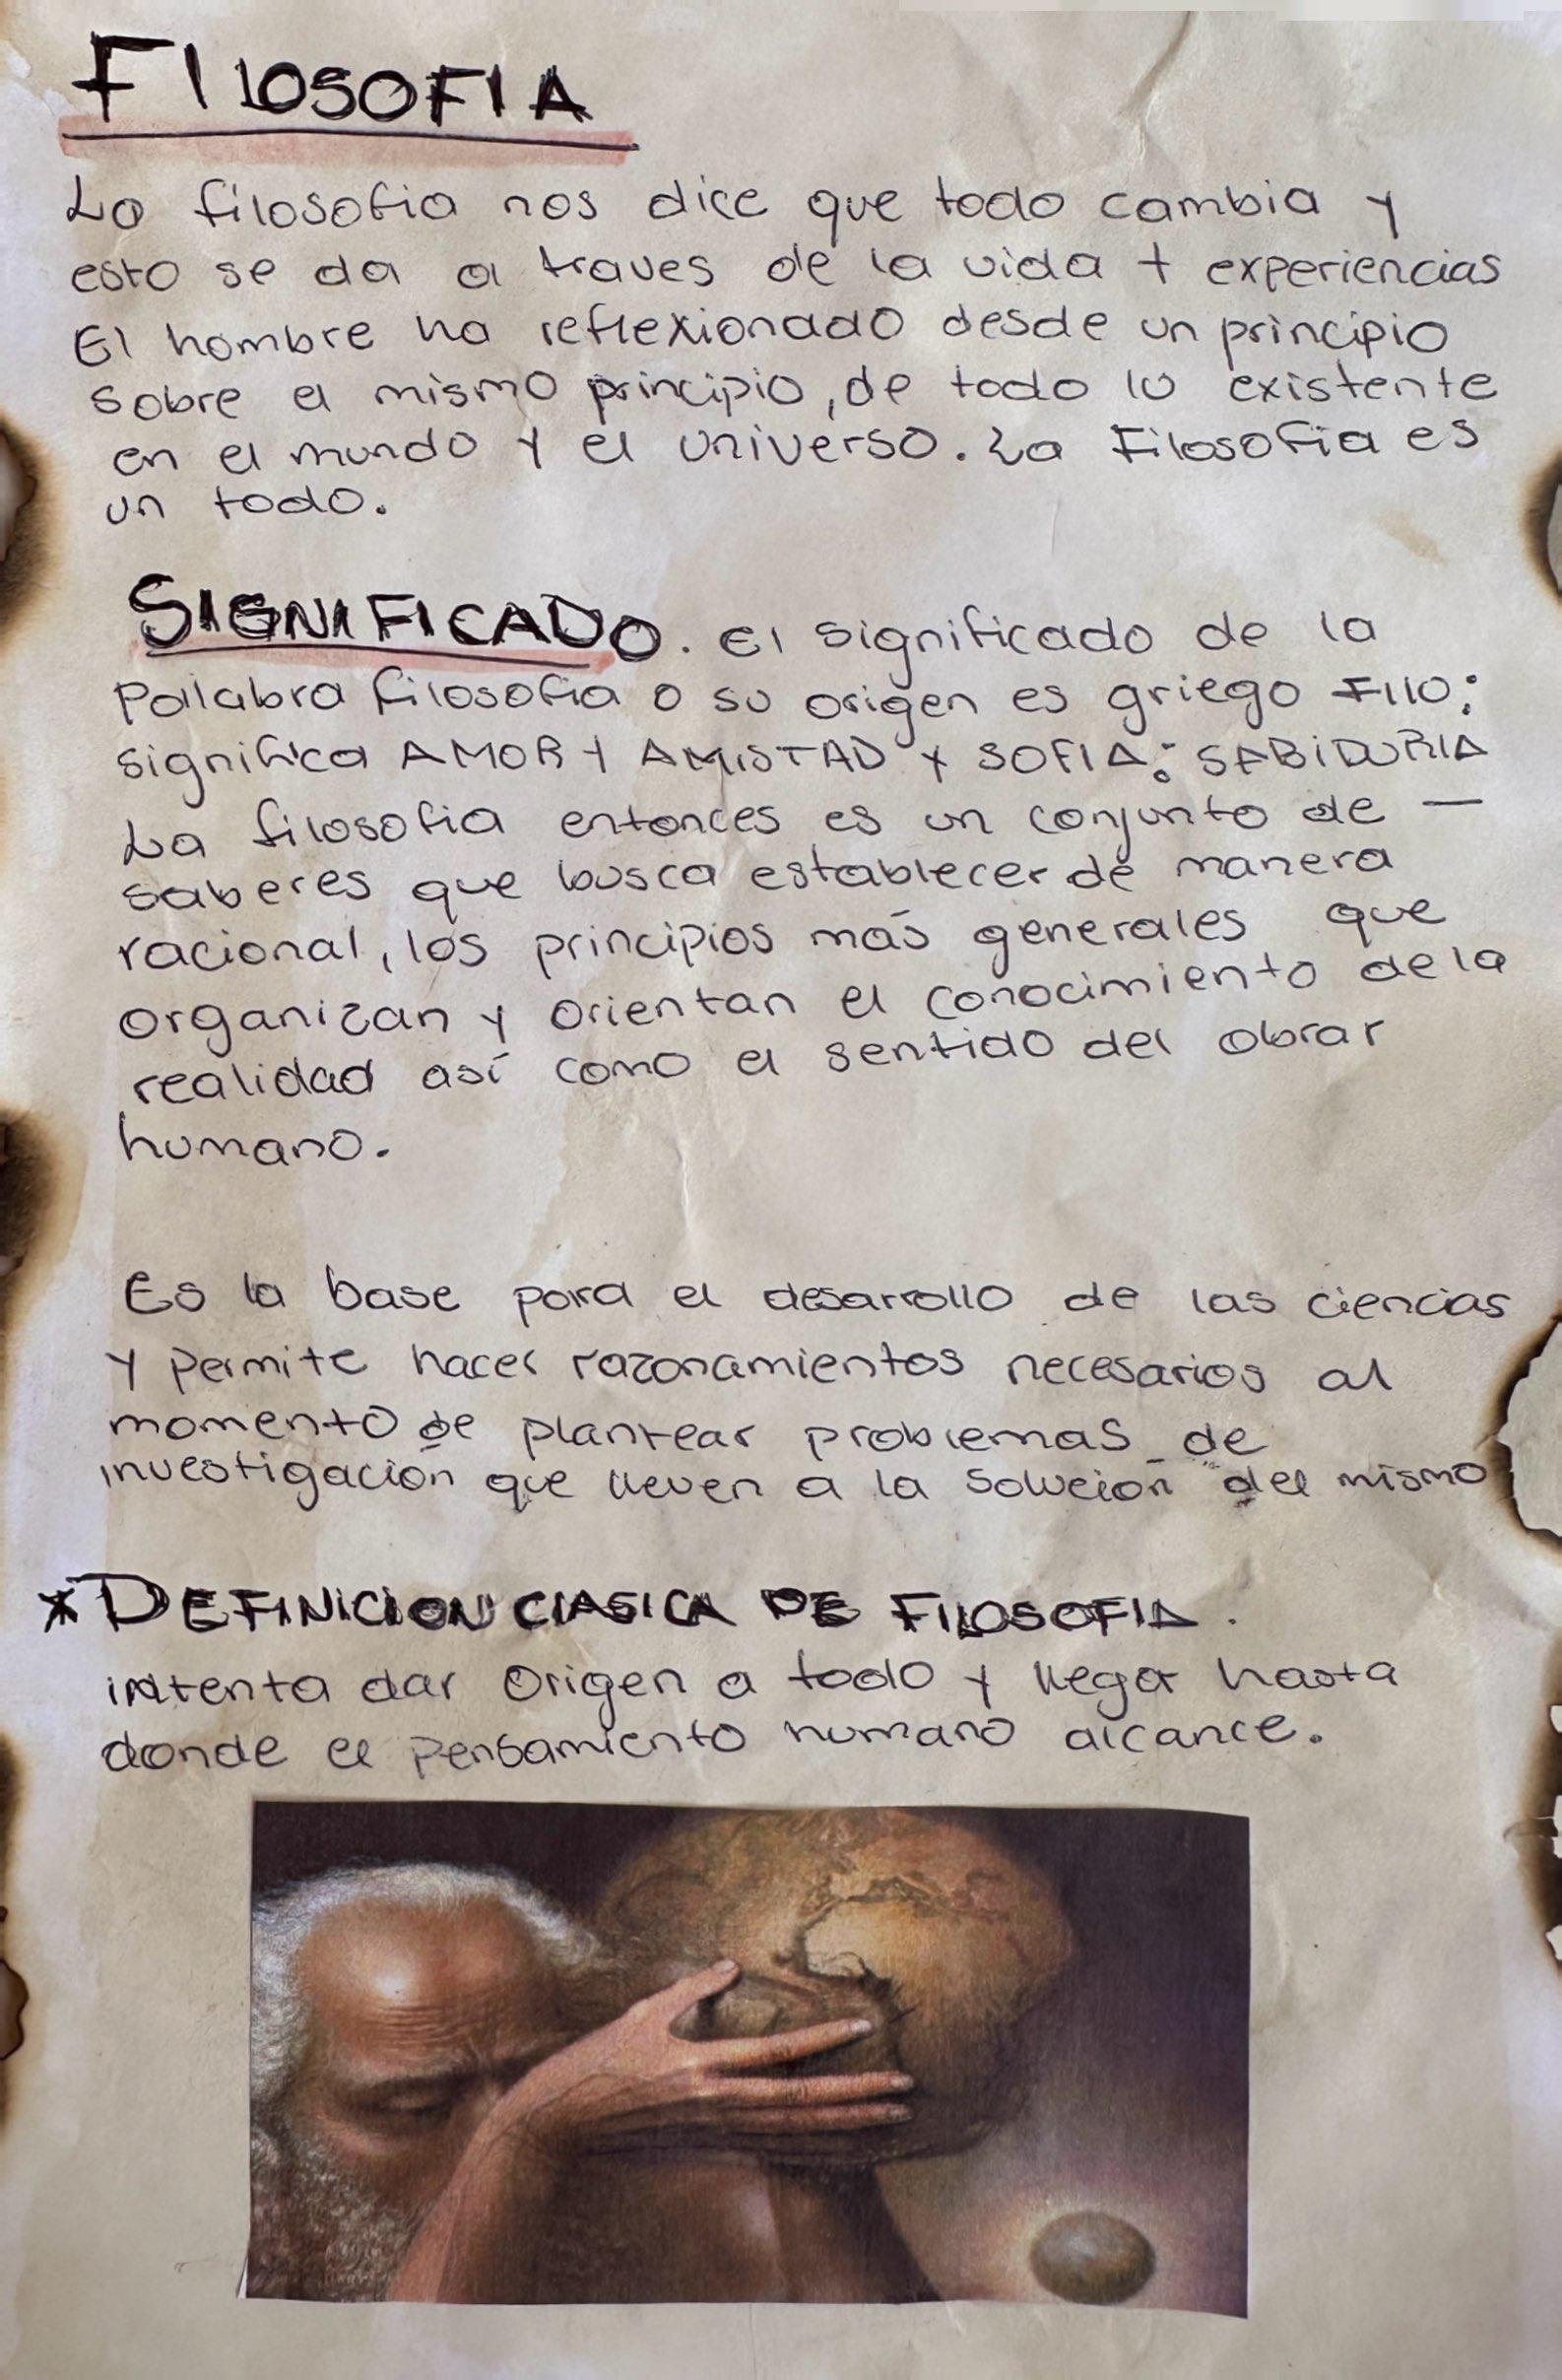 FILOSOFIA
La filosofia nos dice que todo cambia y
esto se da a traves de la vida + experiencias
El hombre ha reflexionado desde un principio
sobre el mismo principio, de todo lo existente
en el mundo y el universo. La Filosofia es
un todo.
SIGNIFICADO. El significado de la
Palabra filosofia o su origen es griego FILO:
significa AMOR Y AMISTAD Y SOFIA: SABIDURIA
La filosofia entonces es un conjunto de —
saberes que busca establecer de manera
racional, los principios más generales que
organizan y orientan el conocimiento de la
realidad así como el sentido del obrar
humano.
Es la base para el desarrollo de las ciencias
y permite hacer razonamientos necesarios al
momento de plantear problemas de
investigación que lleven a la solución del mismo
* DEFINICION CLASICA DE FILOSOFIA.
intenta dar Origen a todo y llegar hasta
donde el pensamiento humano alcance.